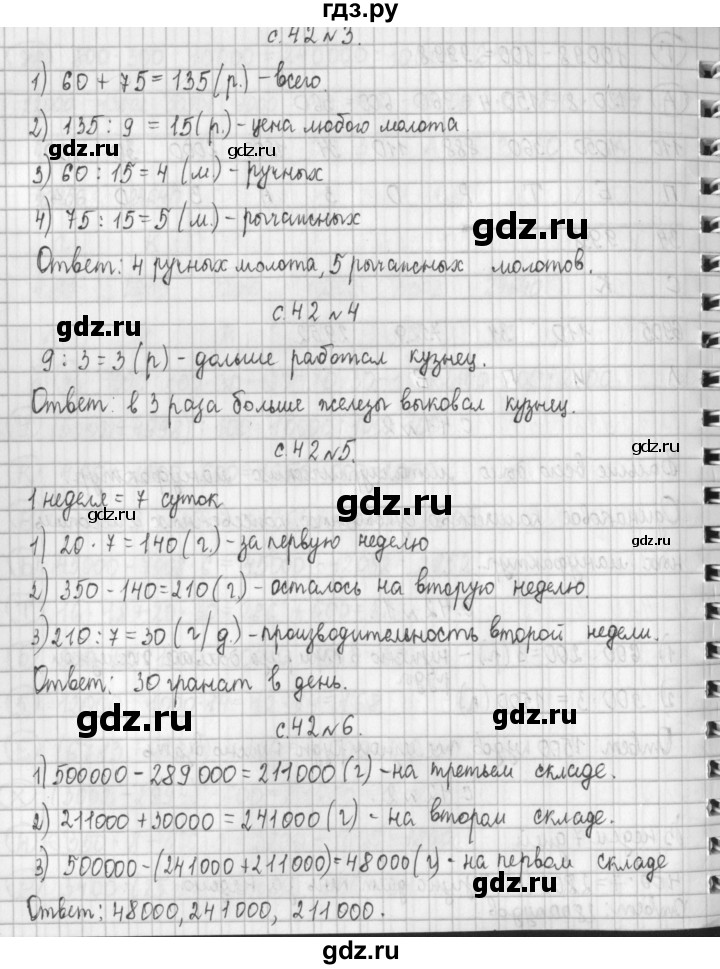 гдз.ру
с.42 №3.
1) 60 + 75 = 135 (р.) - всего.
2) 135 : 9 = 15 (р.) - цена любого молота
gdz.ru gdz.ru
3) 60 : 15 = 4 (м) - ручных
gdz.ru
4) 75 : 15 = 5 (м) - рычажных
Ответ: 4 ручных молота, 5 рычажных молотов.
с.42 №4
gdz.ru
9 : 3 = 3 (р) - дольше работал кузнец.
gdz.ru
Ответ: в 3 раза больше железы выковал кузнец.
с.42 №5.
gdz.ru
1 неделя = 7 суток
gdz.ru
gdz.ru
1) 20 · 7 = 140 (г.) - за первую неделю
2) 350 - 140 = 210 (г.) - осталось на вторую неделю
gdz.ru
3) 210 : 7 = 30 (г/д.) - производительность второй недели.
Ответ: 30 гранат в день.
gdz.ru
gdz.ru
с.42 №6.
1) 500000 - 289000 = 211000 (г) - на третьем складе.
2) 211000 + 30000 = 241000 (г) - на втором складе.
gdz.ru
gdz.ru
3) 500000 - (241000 + 211000) = 48000 (г) - на первом складе
gdz.ru
Ответ: 48000, 241000, 211000.
гдз.ру